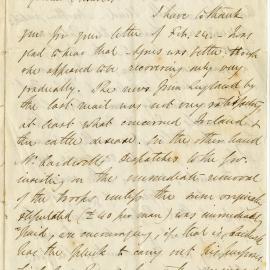 I have to thank
you for your letter of Feb. 24. I was
glad to hear that Agnes was better though
she appeared to be recovering only very
gradually. The news from England by
the last mail was not very satisfactory
at least what concerned Ireland &
the cattle disease. On the other hand
Mr Cardwell's despatches to the Gov.
insisting on the immediate removal
of the troops unless the sum originally
stipulated (£40 per man) was immediately
paid, are encouraging, if that is
has the pluck to carry out his purpose